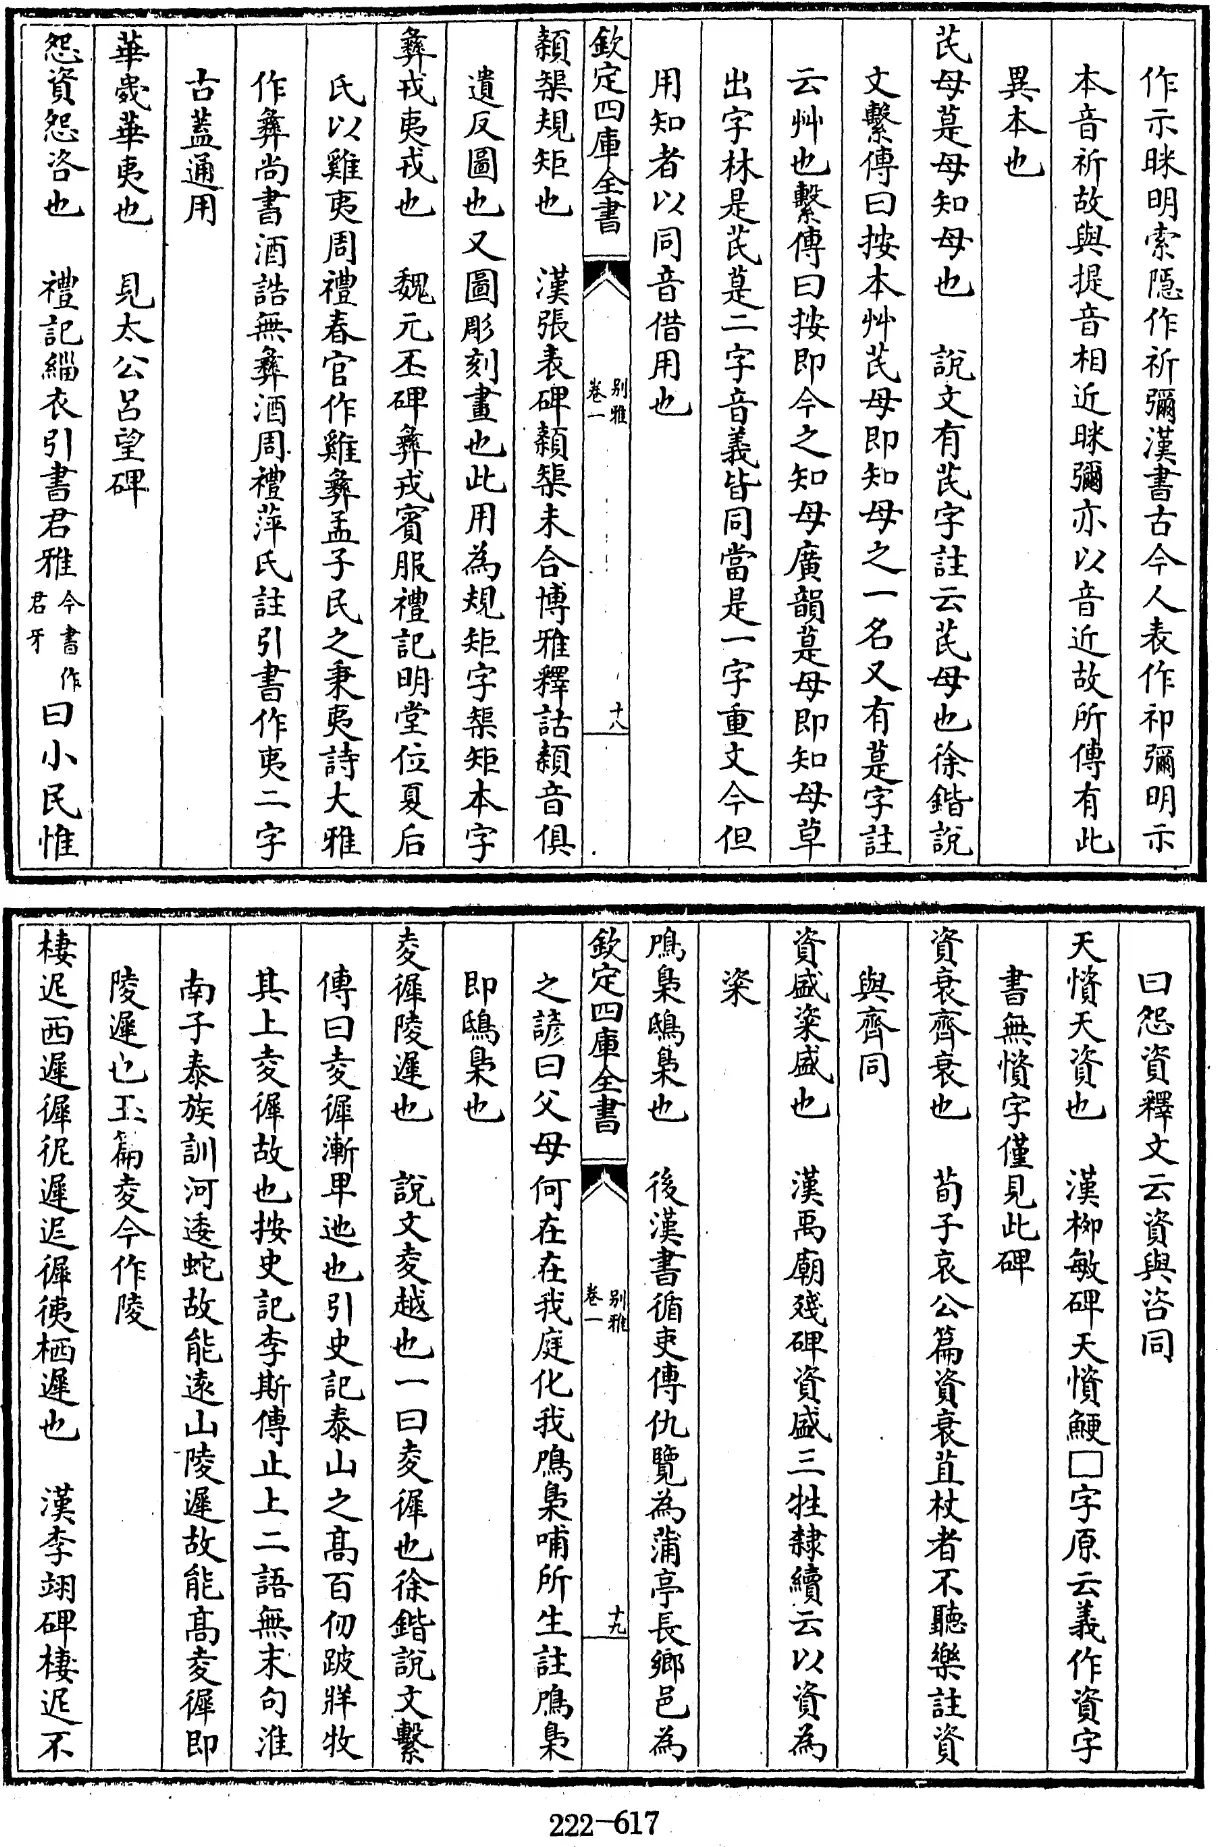 作示眯明索隱作祈彌漢書古今人表作祁彌明示
本音祈故與提音相近眯彌亦以音近故所傳有此
異本也
芪母莫母知母也　說文有芪字註云芪母也徐鍇說
文繫傳曰按本艸芪母即知母之一名又有莫字註
云艸也繫傳曰按即今之知母廣韻莫母即知母草
出字林是芪莫二字音義皆同當是一字重文今但
用知者以同音借用也
欽定四庫全書　别雅卷一　十八
䫌榘規矩也　漢張表碑䫌榘未合博雅釋詁䫌音俱
遺反圖也又圖彫刻畫也此用為規矩字榘矩本字
彝戎夷戎也　魏元丕碑彝戎賓服禮記明堂位夏后
氏以雞夷周禮春官作雞彝孟子民之秉夷詩大雅
作彝尚書酒誥無彝酒周禮萍氏註引書作夷二字
古蓋通用
華㲋華夷也　見太公呂望碑
怨資怨咨也　禮記緇衣引書君雅今書作君牙曰小民惟
曰怨資釋文云資與咨同
天懫天資也　漢柳敏碑天懫鯁□字原云義作資字
書無懫字僅見此碑
資衰齊衰也　荀子哀公篇資衰苴杖者不聽樂註資
與齊同
資盛粢盛也　漢禹廟殘碑資盛三牲隸續云以資為
粢
鳭梟鴟梟也　後漢書循吏傳仇覽為蒲亭長鄉邑為
欽定四庫全書　别雅卷一　十九
之諺曰父母何在在我庭化我鳭梟哺所生註鳭梟
即鴟梟也
夌徲陵遲也　說文夌越也一曰夌徲也徐鍇說文繫
傳曰夌徲漸卑迆也引史記泰山之高百仞跛牂牧
其上夌徲故也按史記李斯傳止上二語無末句淮
南子泰族訓河逶蛇故能遠山陵遲故能高夌徲即
陵遲也玉篇夌今作陵
棲迡西遲徲徥遲迡徲徚栖遲也　漢李翊碑棲迡不
222-617